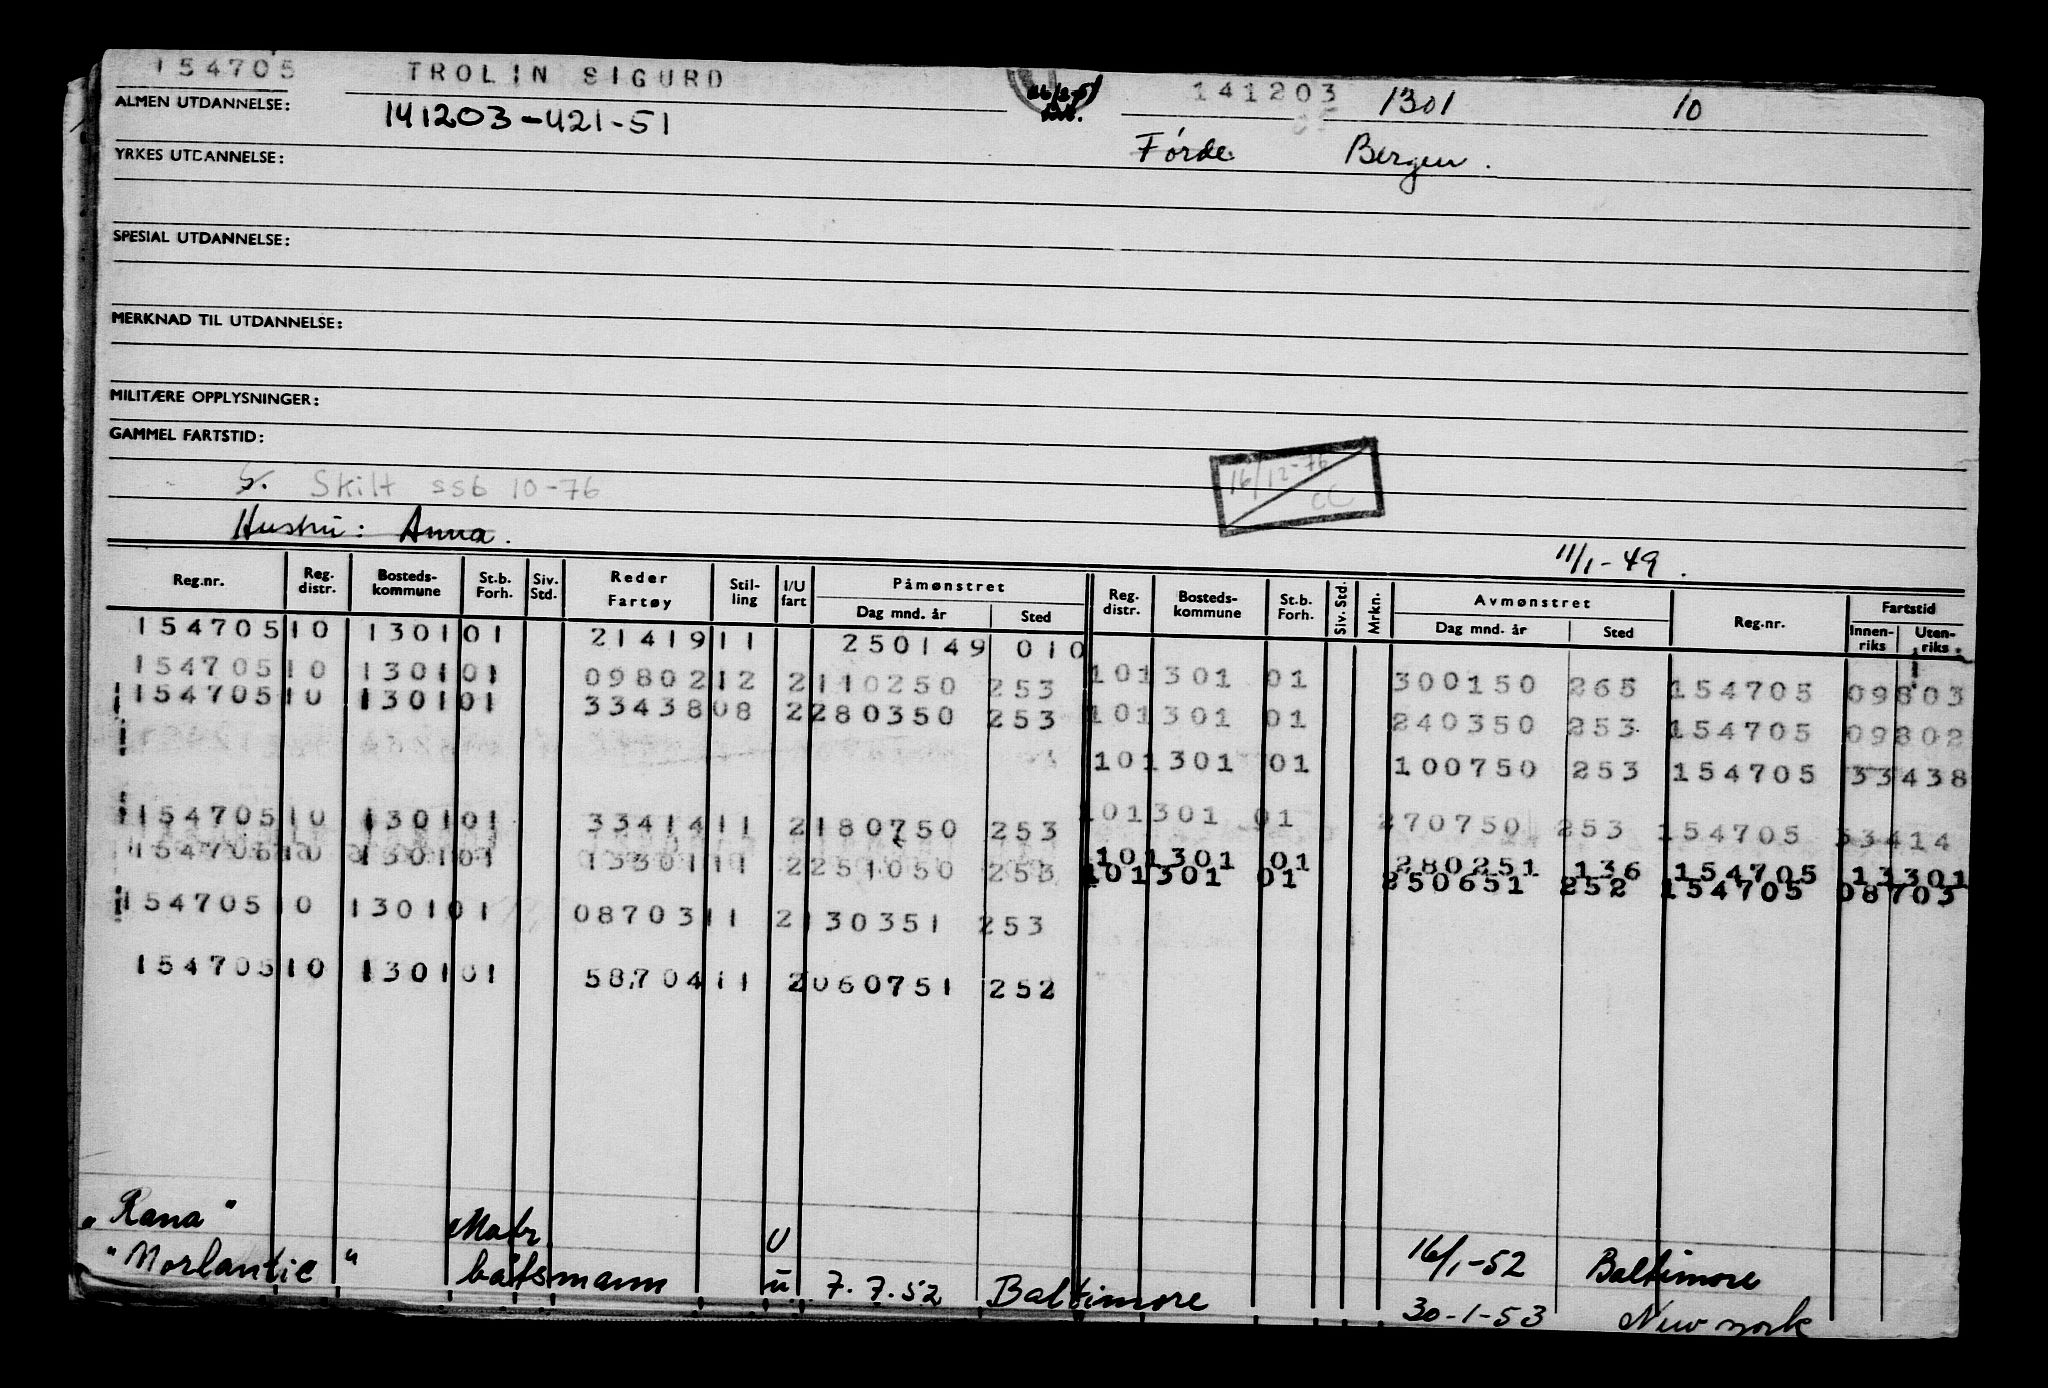 154705 TROLIN SIGURD 141203 1301 10
ALMEN UTDANNELSE: 141203-421-51
Førde Bergen.
YRKES UTDANNELSE:
SPESIAL UTDANNELSE:
MERKNAD TIL UTDANNELSE:
MILITÆRE OPPLYSNINGER:
GAMMEL FARTSTID:
S. Skilt ssb 10-76
16/12-76 CC
Hustru: Anna.
11/1-49.
Reg.nr. Reg. distr. Bosteds-kommune St.b. Forh. Siv. Std. Reder Fartøy Stil-ling I/U fart Påmønstret Dag mnd. år Sted Reg. distr. Bosteds-kommune St.b. Forh. Siv. Std. Mrkn. Avmønstret Dag mnd. år Sted Reg.nr. Fartstid Innen-riks Uten-riks
154705 10 1301 01 21419 11 250149 010
154705 10 1301 01 09802 12 2 110250 253 10 1301 01 300150 265 154705 09803
154705 10 1301 01 33438 08 2 280350 253 10 1301 01 240350 253 154705 09802
10 1301 01 100750 253 154705 33438
154705 10 1301 01 33414 11 2 180750 253 10 1301 01 270750 253 154705 33414
154705 10 1301 01 13301 11 2 251050 253 10 1301 01 280251 136 154705 13301
10 1301 01 250651 252 154705 08703
154705 10 1301 01 08703 11 2 130351 253
154705 10 1301 01 58704 11 2 060751 252
"Rana" Matr. U 16/1-52 Baltimore
"Norlantic" båtsmann u 7.7.52 Baltimore 30-1-53 New york